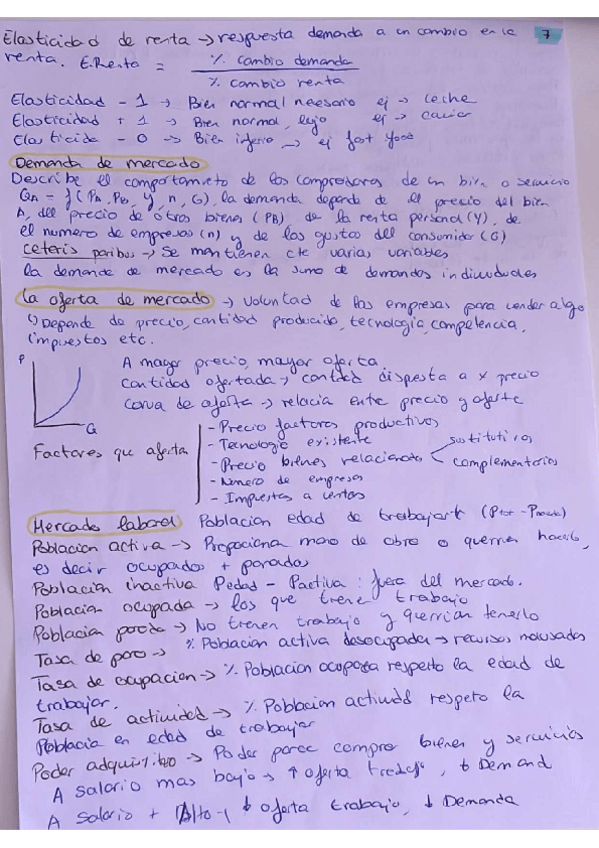 Elasticidad de renta → respuesta demanda a un cambio en la 7
renta. E.Renta = % cambio demanda
% cambio renta
Elasticidad - 1 → Bien normal necesario ej → leche
Elasticidad + 1 → Bien normal lujo ej → caviar
Elasticida - 0 → Bien inferio → ej fast food
Demanda de mercado
Describe el comportamieto de los compradores de un bien o servicio
Qa = f (Pa, Pb, y, n, G), la demanda depende de el precio del bien
A, del precio de otros bienes (PB) de la renta personal (Y), de
el numero de empresas (n) y de los gustos del consumidor (G)
ceteris paribus → Se mantienen cte varias variables
la demanda de mercado es la suma de demandas individuales
La oferta de mercado → voluntad de las empresas para vender algo
Depende de precio, cantidad producida, tecnologia, competencia,
impuestos etc.
P
A mayor precio, mayor oferta
Cantidad ofertada → cantdad dispesta a x precio
Curva de oferta → relacia entre precio y oferta
Q
Factores que afecta
- Precio factores productivos
- Tecnologia existente
- Precio bienes relacionado
sustitutivos
complementarios
- Numero de empresas
- Impuestos a ventas
Mercado laboral Poblacion edad de trabajar
Poblacion activa → Propociona mano de obra o querria hacerlo,
es decir ocupados + parados
Poblacion inactiva Pedad - Pactiva : fuera del mercado.
Poblacion ocupada → los que tiene trabajo
Poblacion → No tienen trabajo y querrian tenerlo
Tasa de paro → % Poblacion activa desocupada → recursos no usados
Tasa de ocupacion → % Poblacion ocupada respecto la edad de
trabajar.
Tasa de actividad → % Poblacion respeto la
Poblacia en edad de trabajar
Poder adquisitivo → Poder para compra bienes y servicios
A salario mas bajo → ↑ oferta , ↓ Demand
A salario + Alto → ↓ oferta trabajo, ↓ Demanda